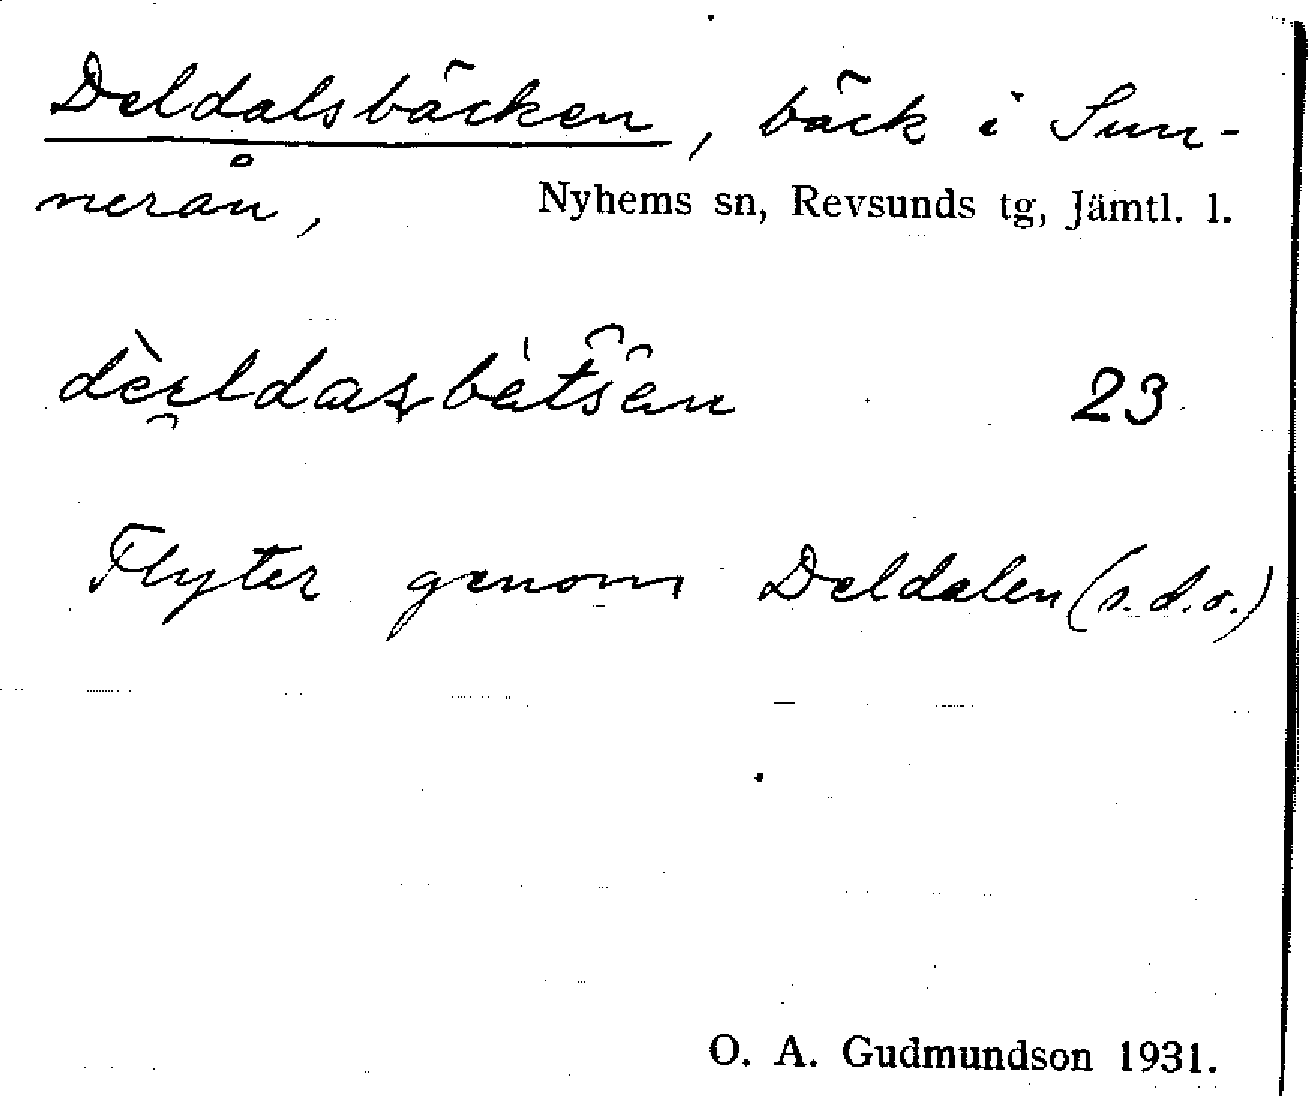 Deldalsbäcken, bäck i Sun-
nerån, Nyhems sn, Revsunds tg, Jämtl. l.
23
Flyter genom Deldalen (s.d.o.)
O. A. Gudmundson 1931.